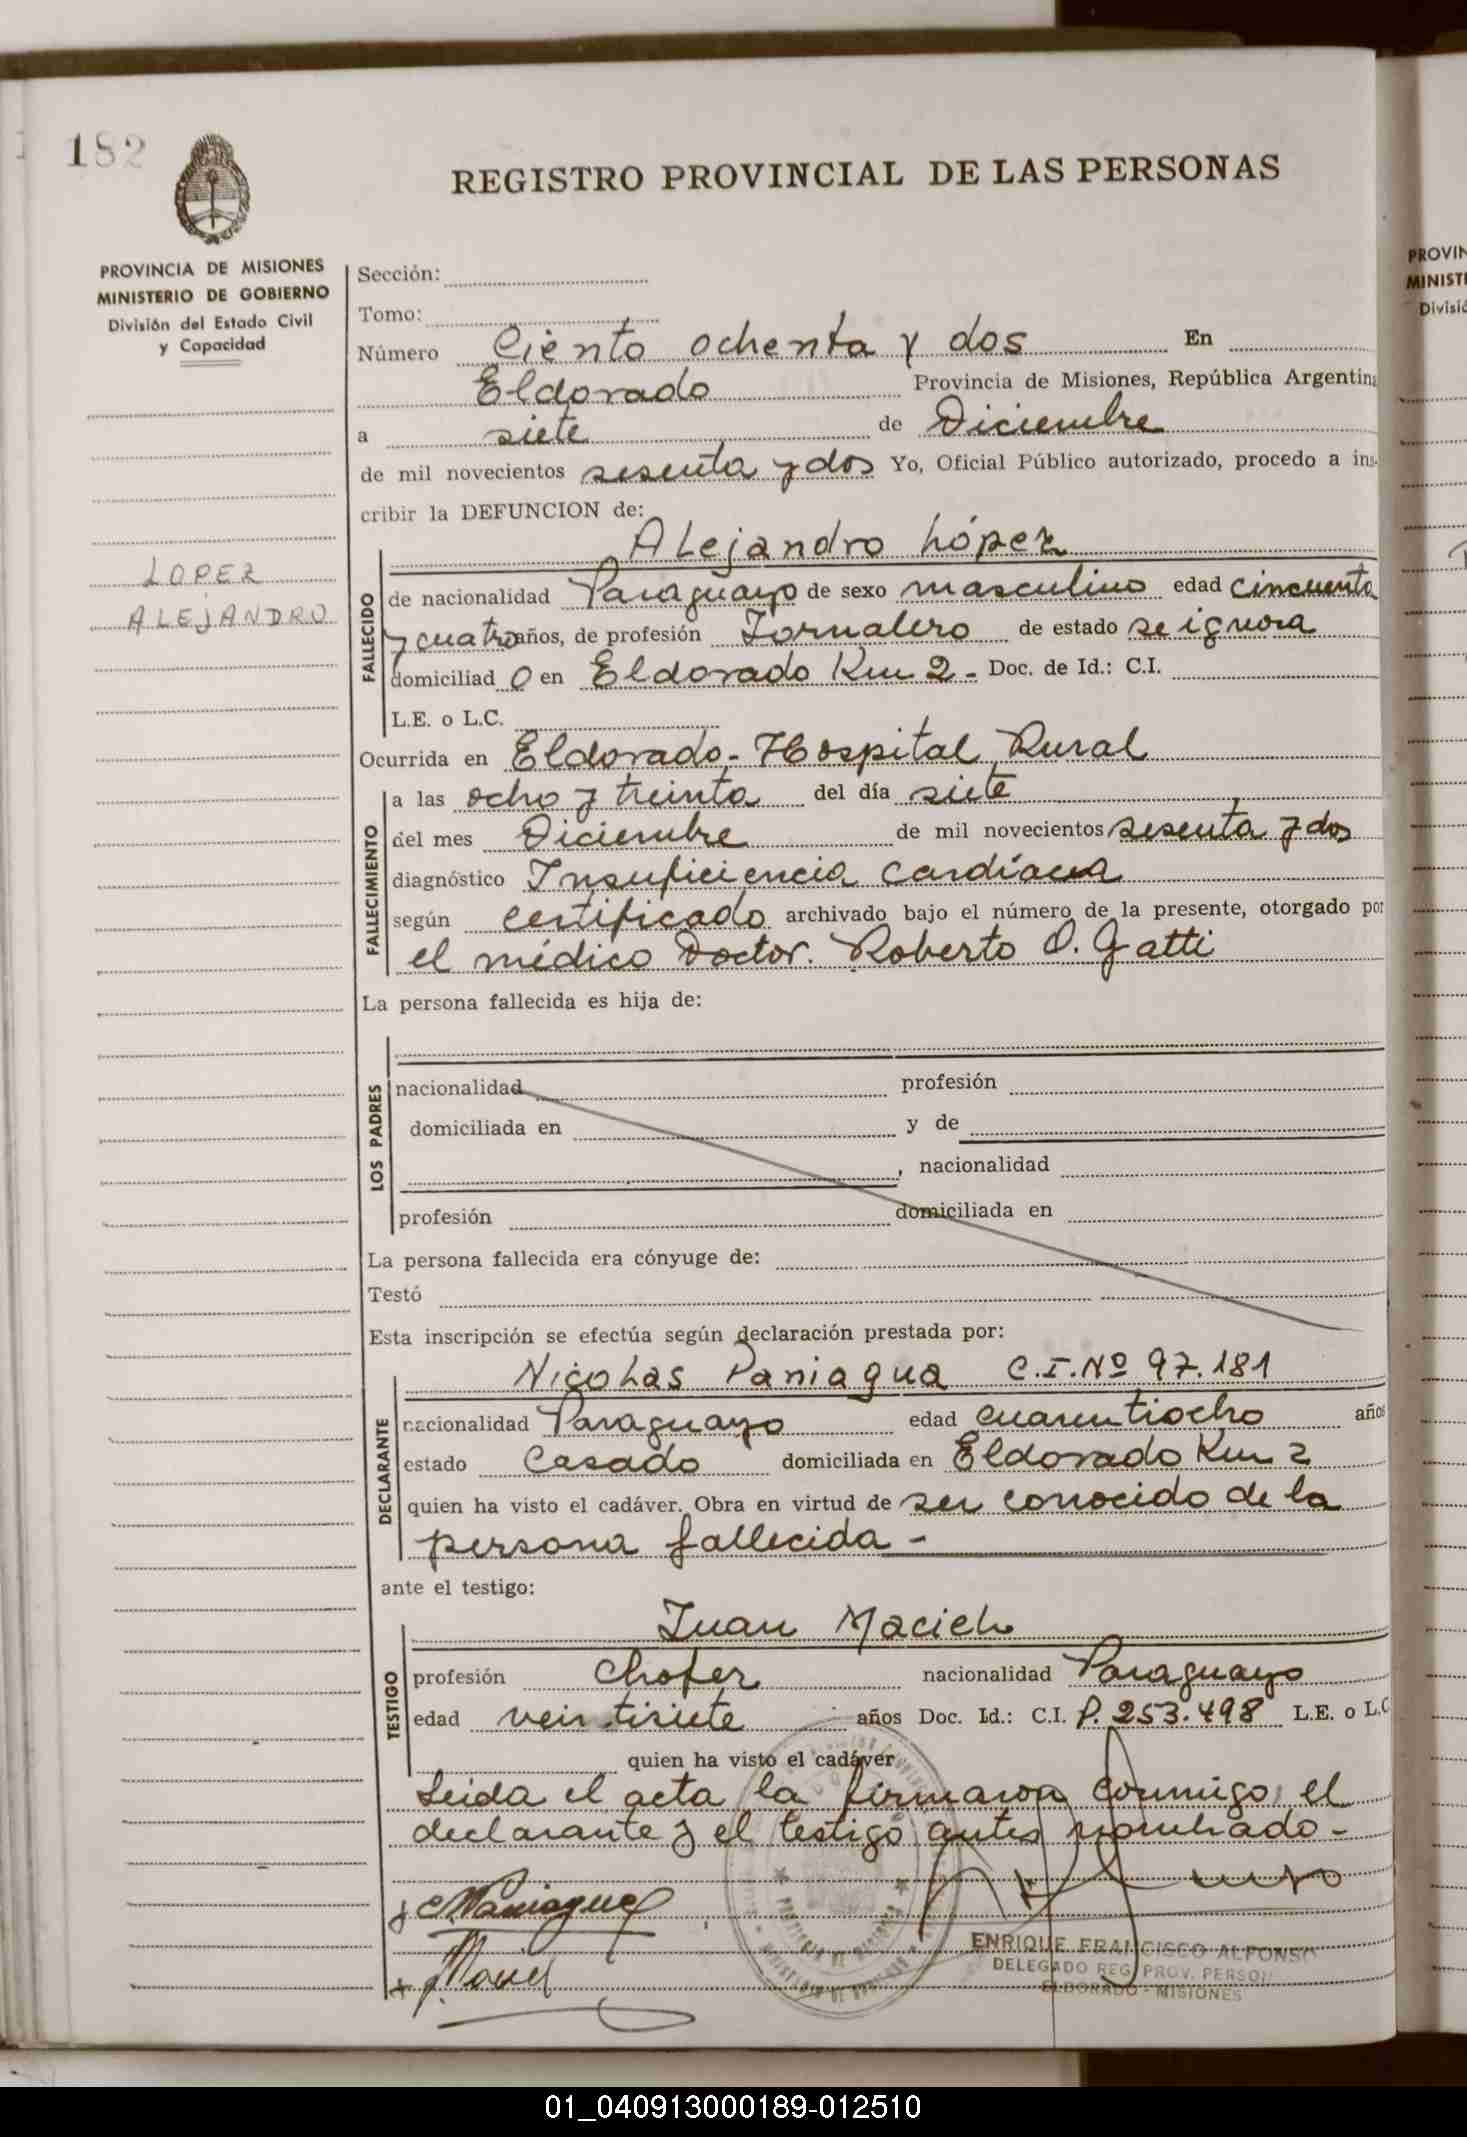 182
REGISTRO PROVINCIAL DE LAS PERSONAS
PROVINCIA DE MISIONES
MINISTERIO DE GOBIERNO
División del Estado Civil
y Capacidad
LOPEZ
ALEJANDRO
Sección:
Tomo:
Número Ciento ochenta y dos En
Eldorado Provincia de Misiones, República Argentina
a siete de Diciembre
de mil novecientos sesenta y dos Yo, Oficial Público autorizado, procedo a ins-
cribir la DEFUNCION de:
Alejandro López
FALLECIDO
de nacionalidad Paraguayo de sexo masculino edad cincuenta
y cuatro años, de profesión Jornalero de estado se ignora
domiciliad o en Eldorado Km 2 - Doc. de Id.: C.I.
L.E. o L.C.
Ocurrida en Eldorado - Hospital Rural
FALLECIMIENTO
a las ocho y treinta del día siete
del mes Diciembre de mil novecientos sesenta y dos
diagnóstico Insuficiencia cardíaca
según certificado archivado bajo el número de la presente, otorgado por
el médico Doctor. Roberto O. Gatti
La persona fallecida es hija de:
LOS PADRES
nacionalidad profesión
domiciliada en y de
, nacionalidad
profesión domiciliada en
La persona fallecida era cónyuge de:
Testó
Esta inscripción se efectúa según declaración prestada por:
Nicolas Paniagua C.I. Nº 97.181
DECLARANTE
nacionalidad Paraguayo edad cuarentiocho años
estado Casado domiciliada en Eldorado Km 2
quien ha visto el cadáver. Obra en virtud de ser conocido de la
persona fallecida -
ante el testigo:
Juan Maciel
TESTIGO
profesión Chofer nacionalidad Paraguayo
edad veintisiete años Doc. Id.: C.I. P. 253.498 L.E. o L.C
quien ha visto el cadáver
Leida el acta la firmaron conmigo, el
declarante y el testigo antes nombrado -
ENRIQUE FRANCISCO ALFONSO
DELEGADO REG. PROV. PERSON
ELDORADO - MISIONES
PROVIN
MINISTE
Divisió
01_040913000189-012510